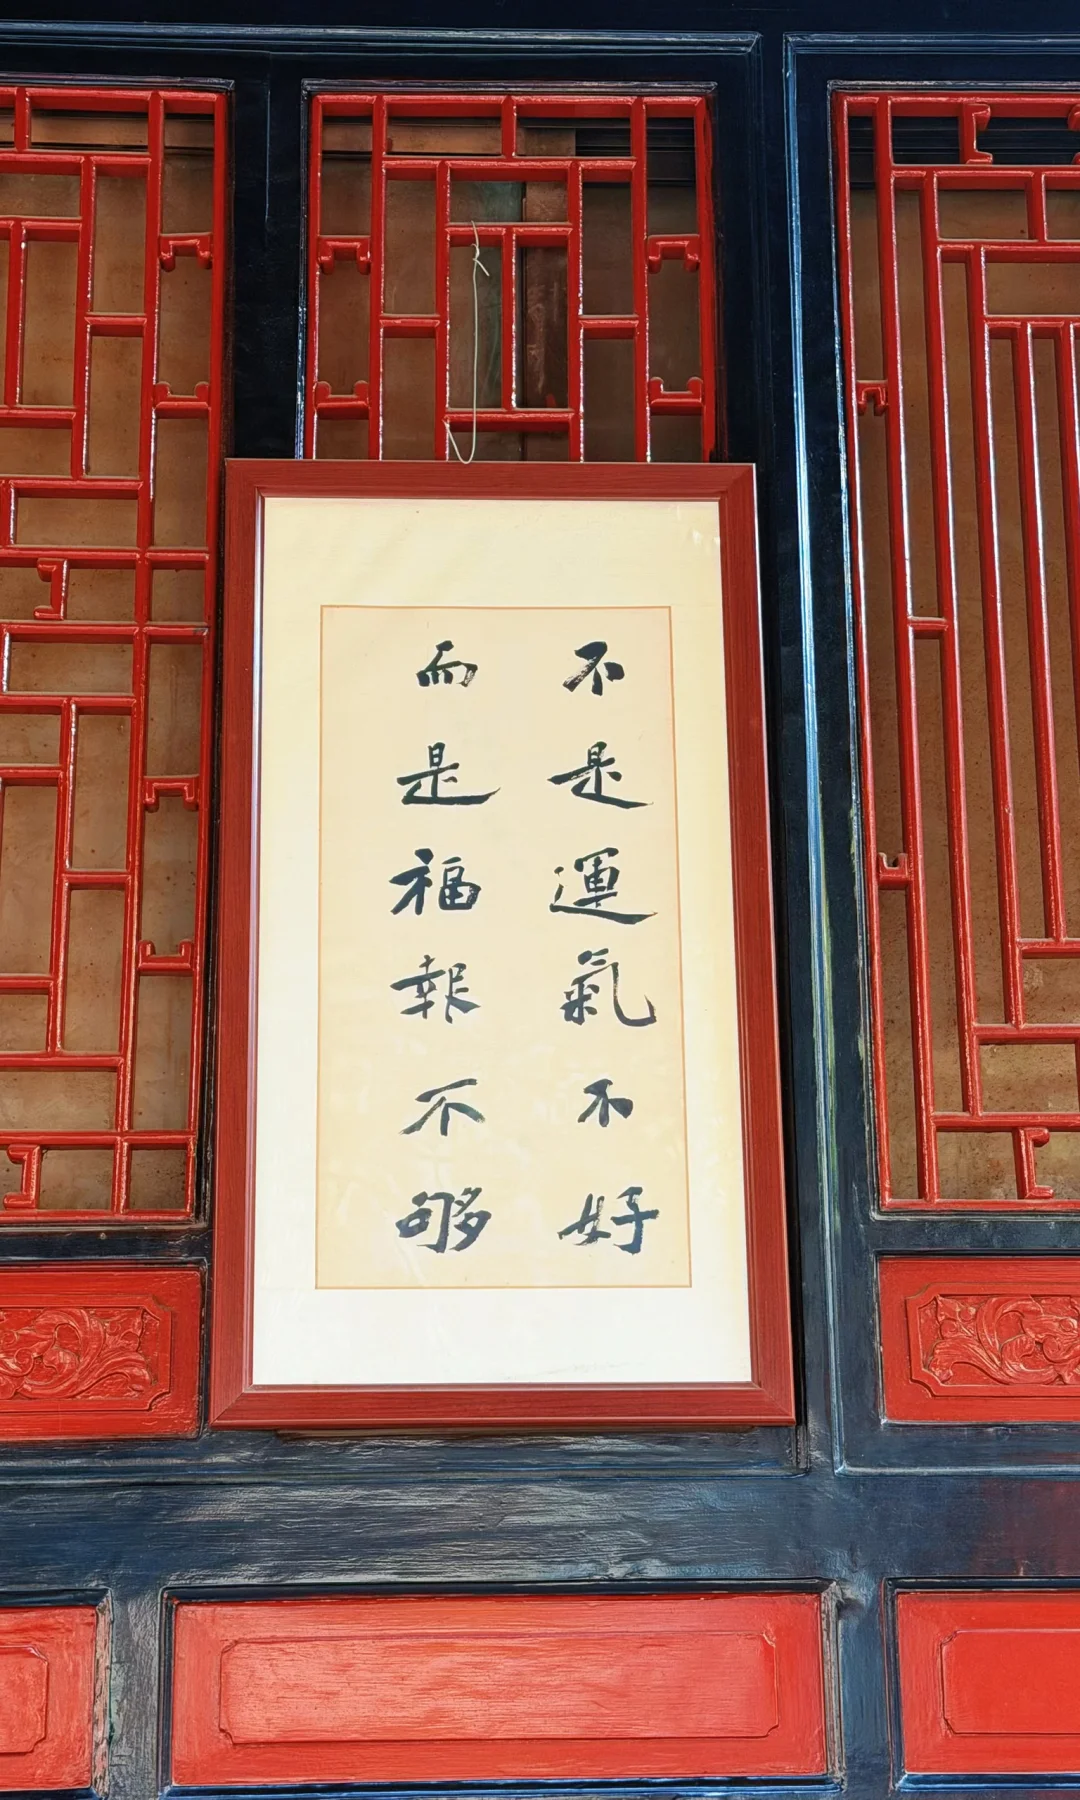 不是運氣不好
而是福報不够